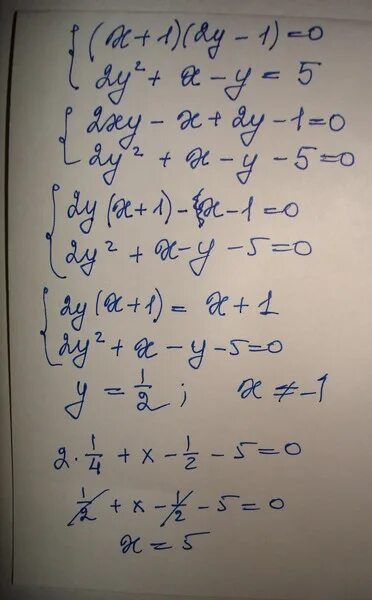 (x+1)(2y-1)=0
2y²+x-y=5
2xy-x+2y-1=0
2y²+x-y-5=0
2y(x+1)-x-1=0
2y²+x-y-5=0
2y(x+1)=x+1
2y²+x-y-5=0
y=1/2; x≠-1
2·1/4+x-1/2-5=0
1/2+x-1/2-5=0
x=5